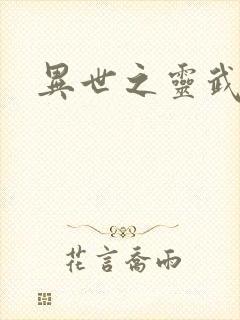 異世之靈武
花言喬雨